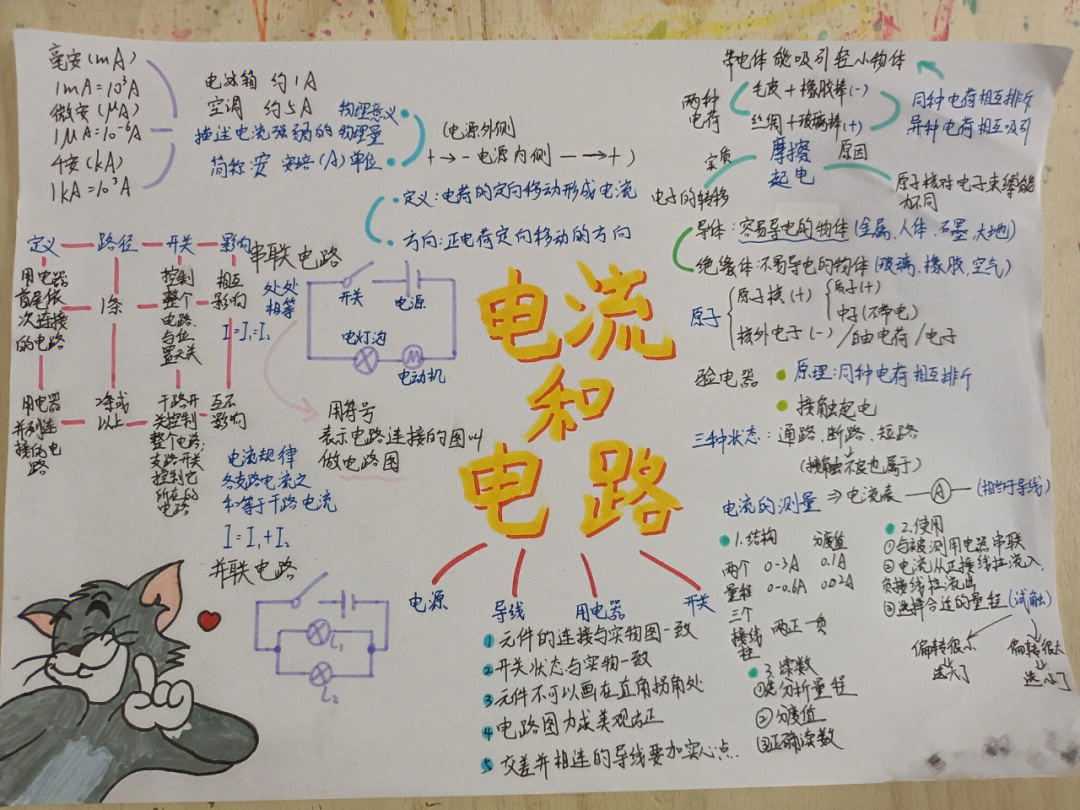 毫安(mA)
1mA=10³A
微安(μA)
1μA=10⁻⁶A
千安(kA)
1kA=10³A
电冰箱 约1A
空调 约5A
物理意义
描述电流强弱的物理量
简称:安 安培(A)单位
(电源外侧
+→- 电源内侧 -→+)
定义:电荷的定向移动形成电流
方向:正电荷定向移动的方向
带电体能吸引轻小物体
两种
电荷
毛皮+橡胶棒(-)
丝绸+玻璃棒(+)
同种电荷相互排斥
异种电荷相互吸引
摩擦
起电
实质
电子的转移
原因
原子核对电子束缚能
力不同
导体:容易导电的物体(金属、人体、石墨、大地)
绝缘体:不易导电的物体(玻璃、橡胶、空气)
原子
原子核(+)
质子(+)
中子(不带电)
核外电子(-)/自由电荷/电子
验电器
原理:同种电荷相互排斥
接触起电
三种状态:通路、断路、短路
(接触不良也属于)
定义
路径
开关
影响
用电器
首尾依
次连接
的电路
1条
控制
整个
电路,
与位
置无关
相互
影响
I=I₁=I₂
用电器
并列连
接的电
路
2条或
以上
干路开
关控制
整个电路;
支路开关
控制它
所在的
电路
互不
影响
串联电路
处处
相等
开关
电源
电灯泡
M
电动机
用符号
表示电路连接的图叫
做电路图
电流规律
各支路电流之
和等于干路电流
I=I₁+I₂
并联电路
L₁
L₂
电流
和
电路
电源
导线
用电器
开关
1 元件的连接与实物图一致
2 开关状态与实物一致
3 元件不可以画在直角拐角处
4 电路图力求美观方正
5 交差并相连的导线要加实心点.
电流的测量⇒电流表 A (相当于导线)
1.结构
分度值
两个
量程
0-3A 0.1A
0-0.6A 0.02A
三个
接线
柱
两正一负
2.使用
①与被测用电器串联
②电流从正接线柱流入,
负接线柱流出
③选择合适的量程(试触)
偏转很小
选大了
偏转很大
选小了
3.读数
①先分析量程
②分度值
③正确读数